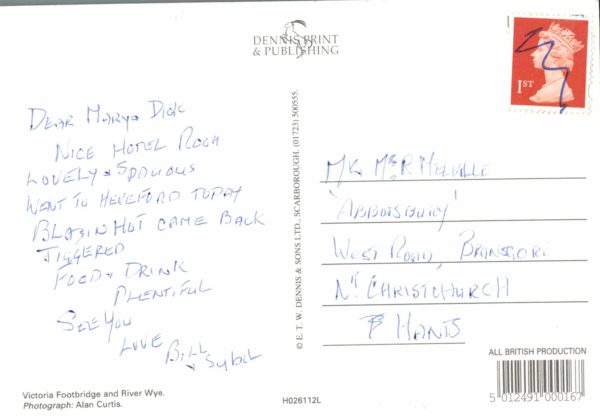 DENNIS PRINT
& PUBLISHING
1ST
DEAR MARY & DICK
NICE HOTEL ROOM
LOVELY & SPACIOUS
WENT TO HEREFORD TODAY
BLAZIN HOT CAME BACK
JIGGERED
FOOD & DRINK
PLENTIFUL
SEE YOU
LOVE
BILL
& SYBIL
© E. T. W. DENNIS & SONS LTD., SCARBOROUGH. (01723) 500555.
MR MRS R MELVILLE
'ABBOTSBURY'
WEST ROAD, BRANSGORE
NR CHRISTCHURCH
HANTS
ALL BRITISH PRODUCTION
5 012491 000167
Victoria Footbridge and River Wye.
Photograph: Alan Curtis.
H026112L